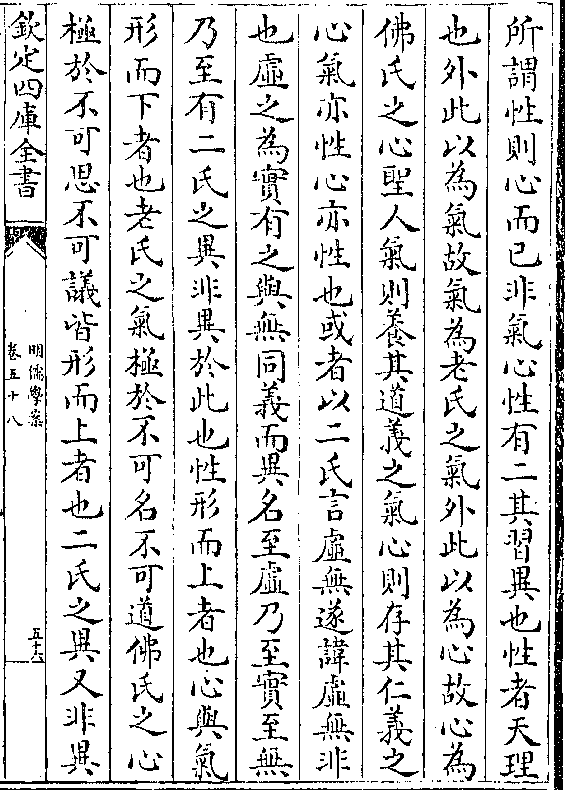 所謂性則心而已非氣心性有二其習異也性者天理
也外此以為氣故氣為老氏之氣外此以為心故心為
佛氏之心聖人氣則養其道義之氣心則存其仁義之
心氣亦性心亦性也或者以二氏言虛無遂諱虛無非
也虛之為實有之與無同義而異名至虛乃至實至無
乃至有二氏之異非異於此也性形而上者也心與氣
形而下者也老氏之氣極於不可名不可道佛氏之心
極於不可思不可議皆形而上者也二氏之異又非異
欽定四庫全書
明儒學案
卷五十八
五十六